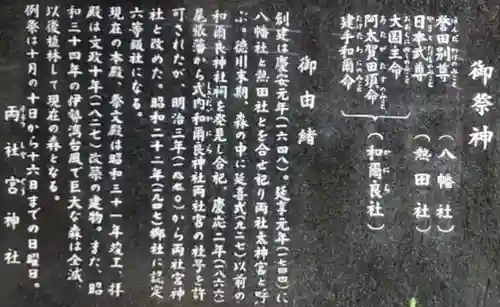 御祭神
誉田別尊（八幡社）
ほんだわけのみこと
日本武尊（熱田社）
やまとたけるのみこと
大国主命
おおくにぬしのみこと
阿太賀田須命（和爾良社）
あたかたすのみこと
かにら
建手和爾命
たけたわにのみこと
御由緒
創建は慶安元年（一六四八）。延享元年（一七四四）に
八幡社と熱田社とを合せ祀り両社太神宮と呼
ぶ。徳川末期、森の中に延喜式（九二七）以前の
和爾良神社祠を発見し合祀。慶応二年（一八六六）
尾張藩から式内和爾良神社両社宮の社号を許
可されたが、明治三年（一八七〇）から両社宮神
社と改めた。昭和二十二年（一九四七）郷社に認定
六等級社になる。
現在の本殿、祭文殿は昭和三十一年竣工、拝
殿は文政十年（一八二七）改築の建物。また、昭
和三十四年の伊勢湾台風で巨大な森は全滅、
以後植林して現在の森となる。
例祭は十月の十日から十六日までの日曜日。
両社宮神社